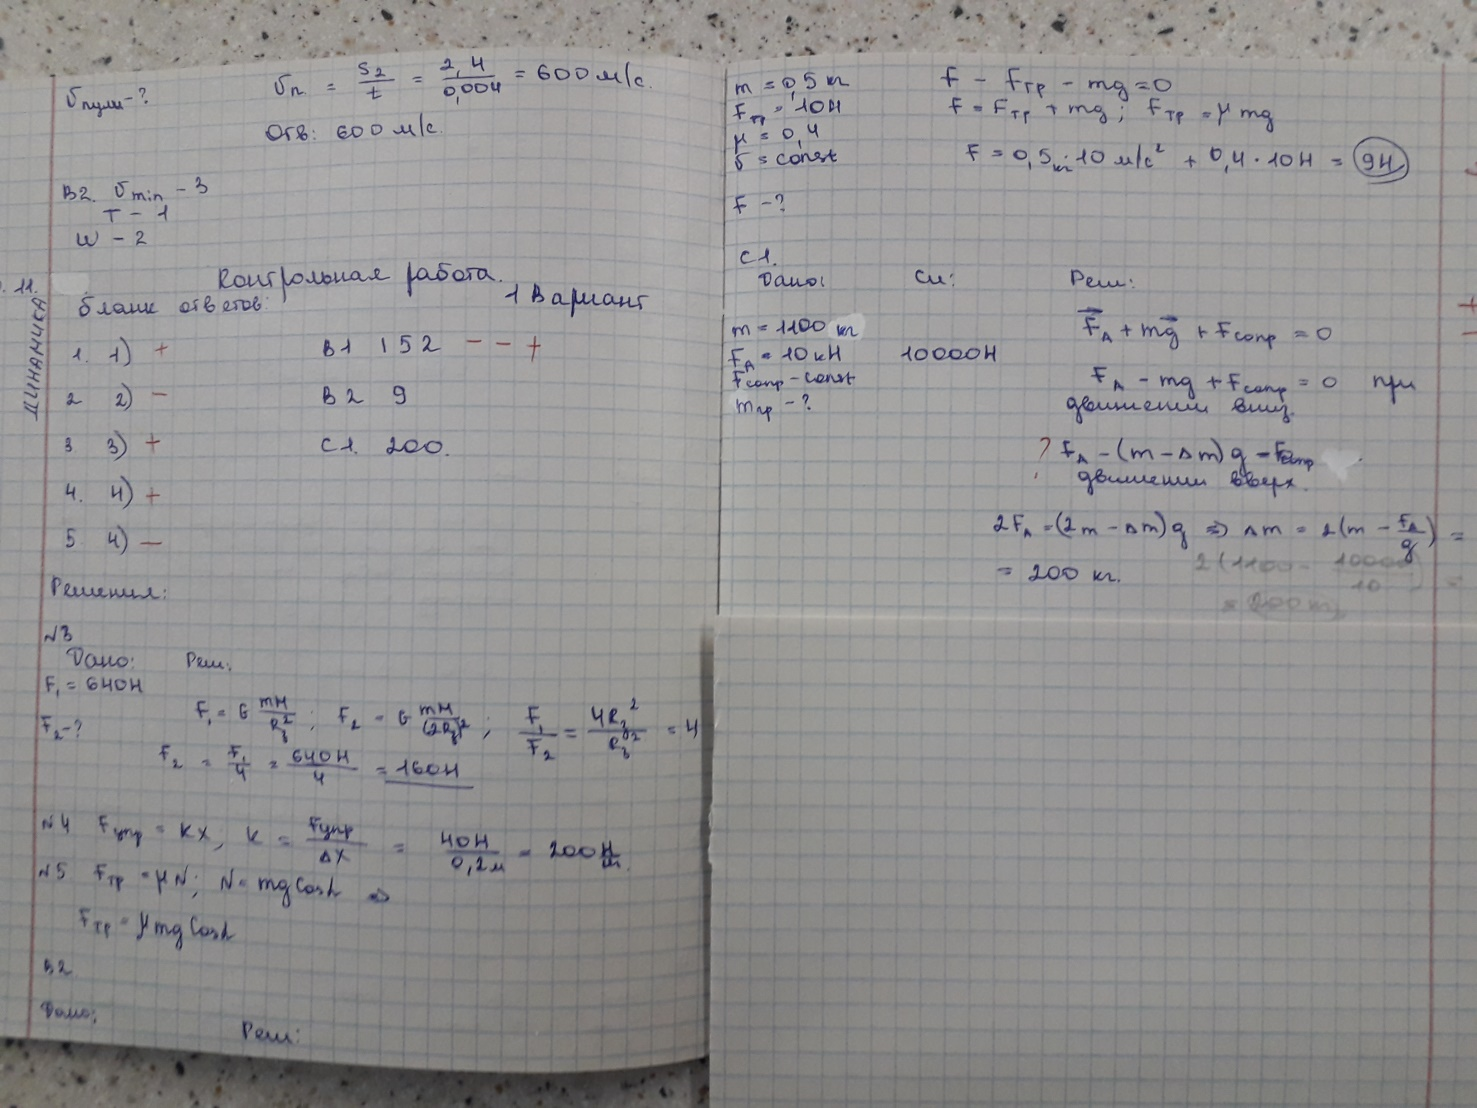 υпули-?
υп = S2/t = 2,4/0,004 = 600 м/с.
Отв: 600 м/с.
В2. υmin - 3
T - 1
W - 2
11.
Контрольная работа.
Бланк ответов:
1 Вариант
ДИНАМИКА
1. 1) +
2 2) -
3 3) +
4. 4) +
5 4) -
В1 152 - - +
В2 9
С1. 200.
Решения:
N3
Дано: Реш:
F1 = 640Н
F2-?
F1 = G mM/Rз²; F2 = G mM/(2Rз)²; F1/F2 = 4Rз²/Rз² = 4
F2 = F1/4 = 640Н/4 = 160Н
N4 Fупр = kx, k = Fупр/Δx = 40Н/0,2м = 200 Н/м.
N5 Fтр = μN; N = mg cosα ⇒
Fтр = μmg cosα
В2
Дано:
Реш:
m = 0,5 кг
Fтр = 10Н
μ = 0,4
υ = const
F -?
F - Fтр - mg = 0
F = Fтр + mg; Fтр = μ mg
F = 0,5 кг · 10 м/с² + 0,4 · 10Н = 9Н
С1.
Дано: Си: Реш:
m = 1100 кг
FА = 10 кН 10000Н
Fсопр - const
mгр - ?
FА + mg + Fсопр = 0
FА - mg + Fсопр = 0 при
движении вниз.
? FА - (m - Δm) g - Fсопр
движении вверх.
2FА = (2m - Δm)g ⇒ Δm = 2(m - FА/g) =
= 200 кг.
2(1100 - 10000/10) =
= 200 кг